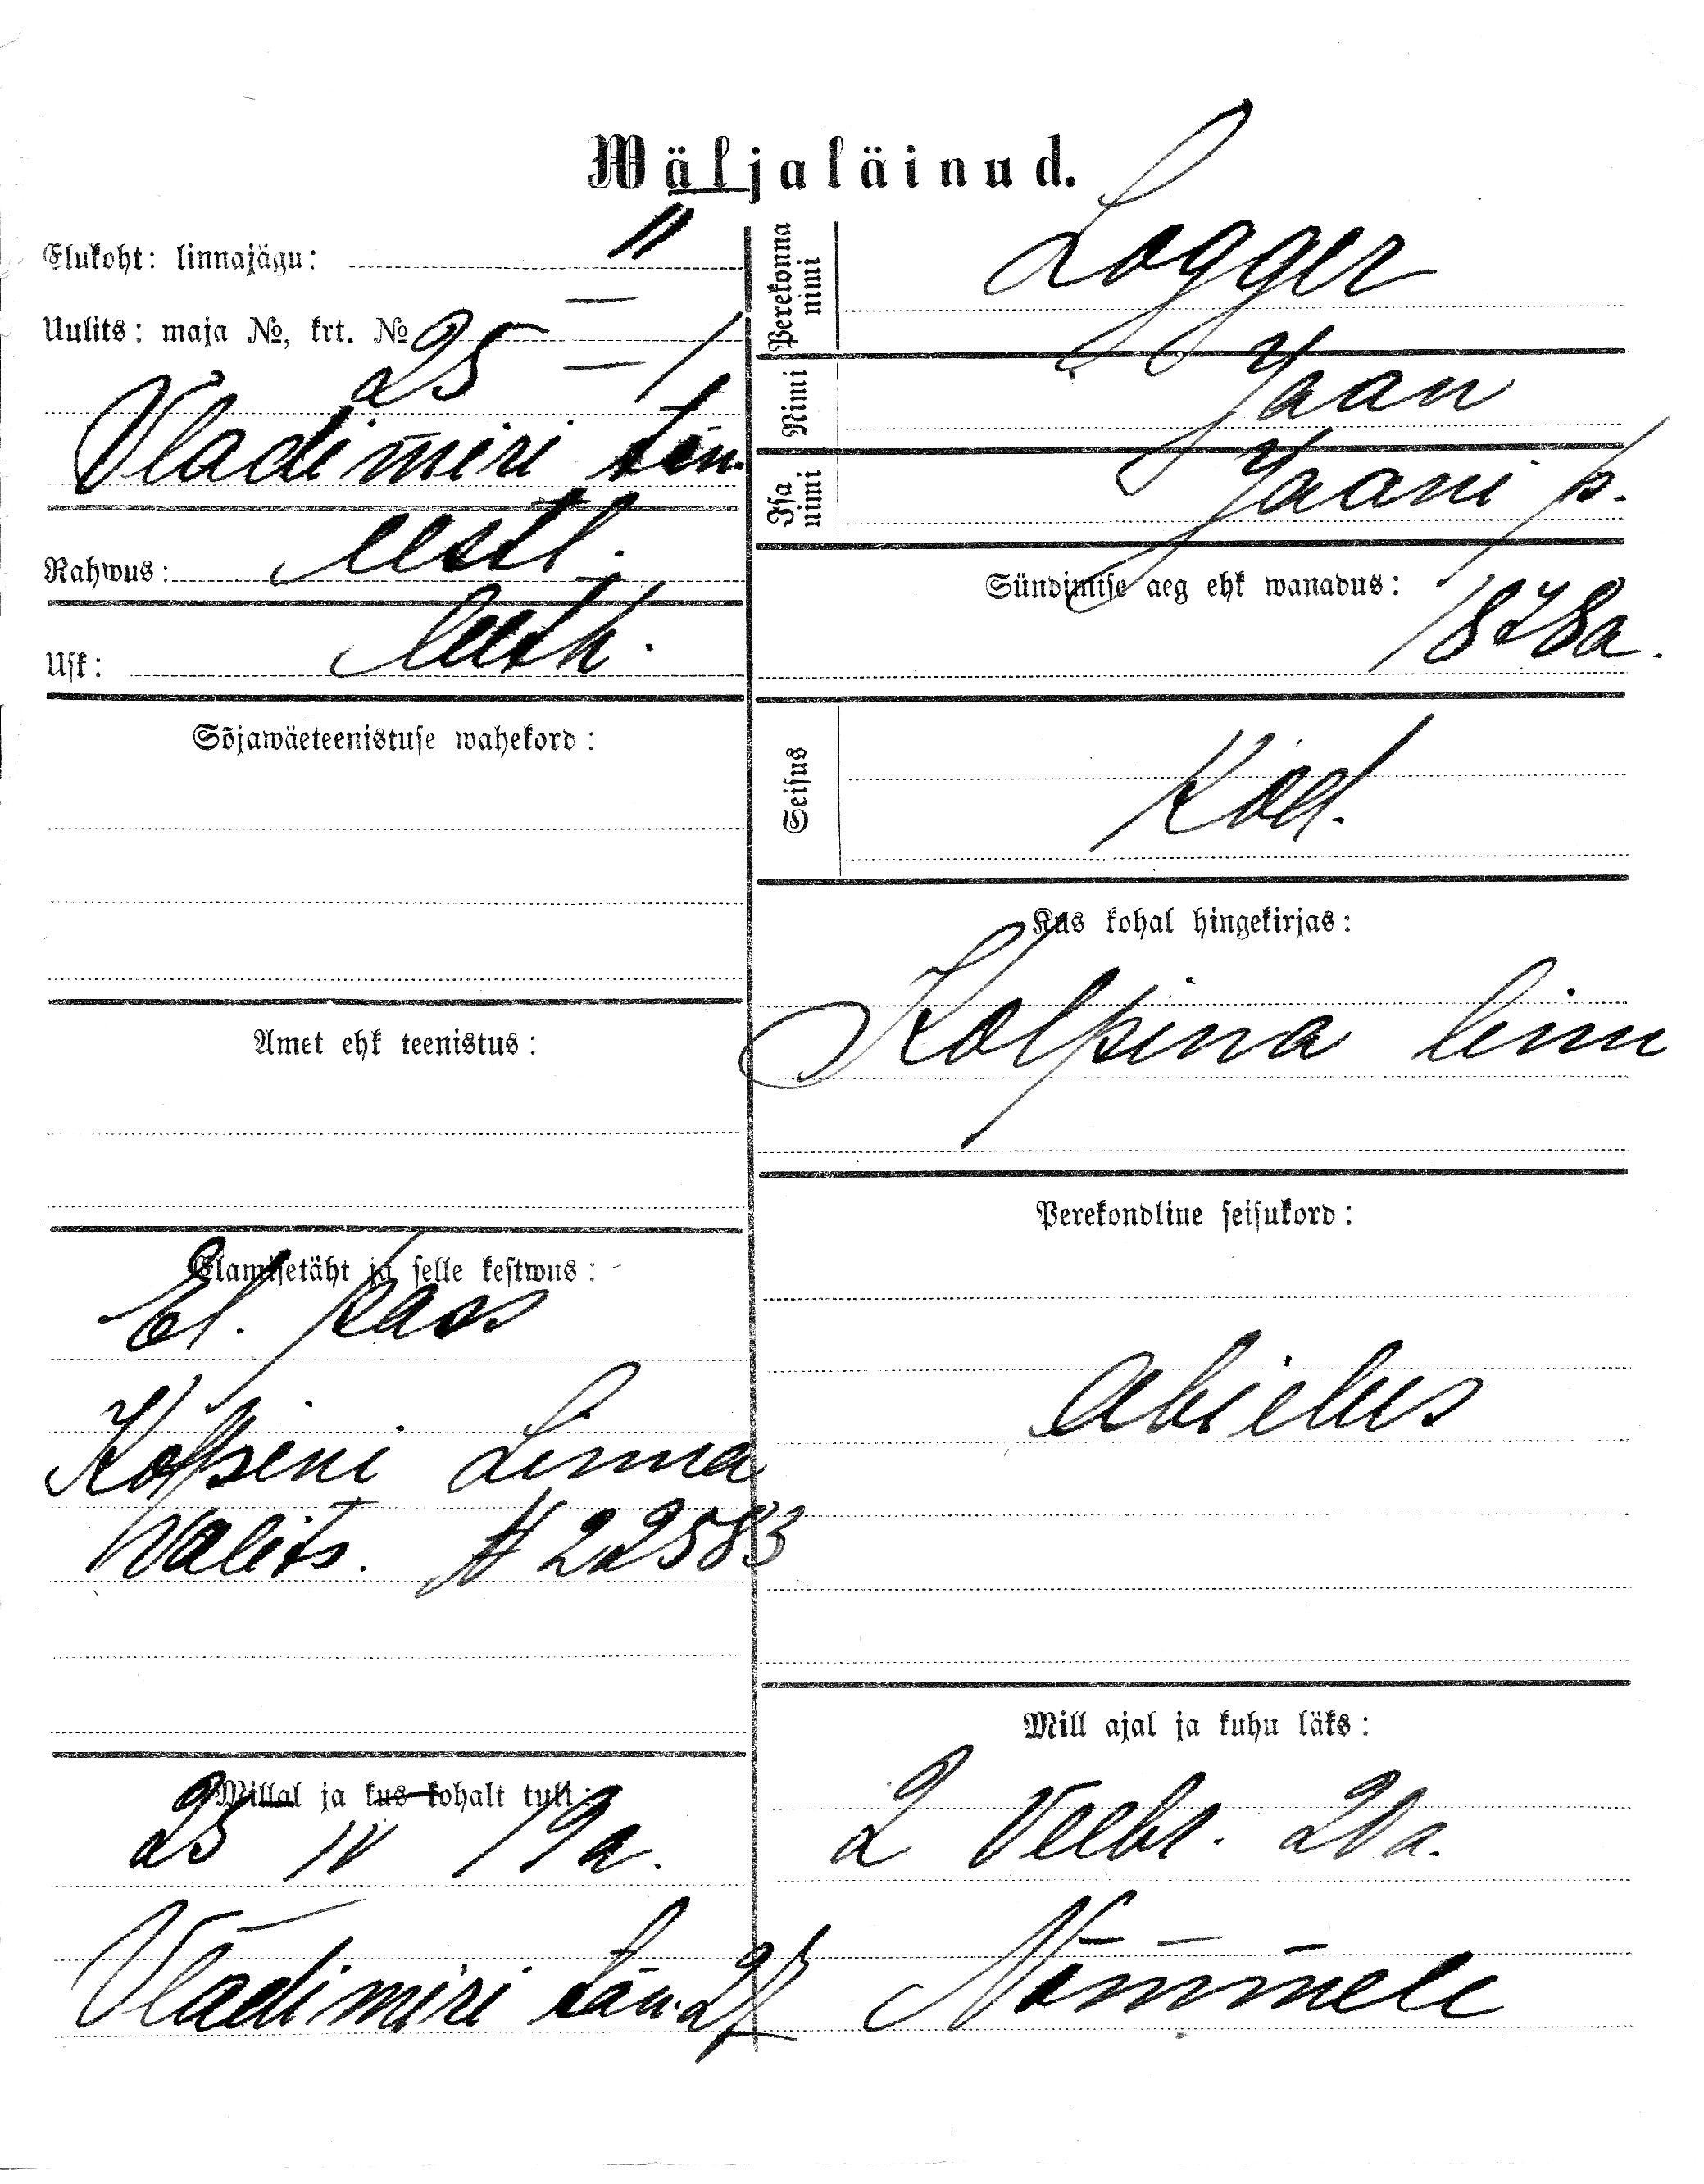 Wäljaläinud.
Elukoht: linnajägu: II
Uulits: maja №, krt. № 25 — 1
Vladimiri tän.
Rahwus: eestl.
Usk: luth.
Sõjawäeteenistuse wahekord:
Amet ehk teenistus:
Elamisetäht ja selle kestwus:
El. pass
Kolpini Linna
Valits. № 22583
Millal ja kus kohalt tuli:
25 IV 19a.
Vladimiri tän.
Perekonna nimi Logger
Nimi Jaan
Isa nimi Jaani p.
Sündimise aeg ehk wanadus:
1878a.
Seisus Kod.
Kus kohal hingekirjas:
Kolpina linn
Perekondline seisukord:
Abielus
Mill ajal ja kuhu läks:
2 Veebr. 20a.
Nõmmele